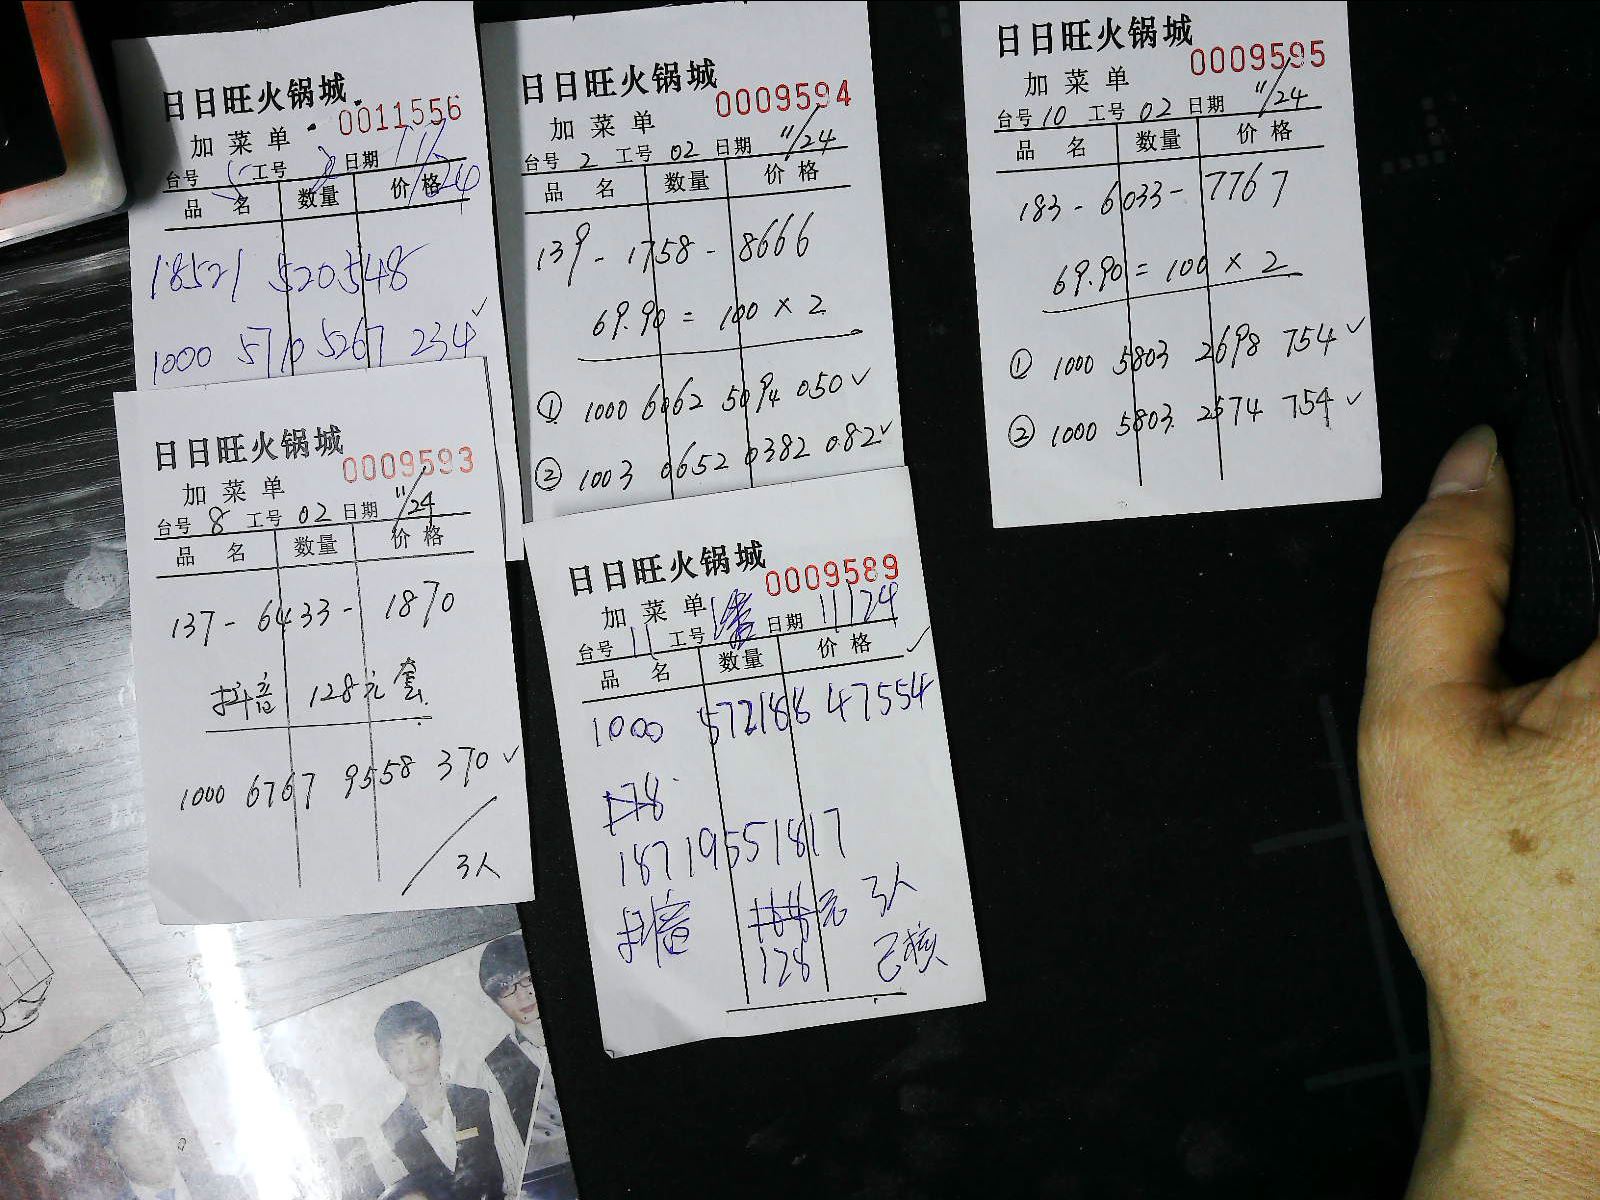 日日旺火锅城
0011556
加菜单
台号 5 工号 日期 11/24
品名 数量 价格
18521 520548
1000 5710 5267 234✓
日日旺火锅城
0009594
加菜单
台号 2 工号 02 日期 11/24
品名 数量 价格
139-1758-8666
69.90=100×2
① 1000 6062 5094 050✓
② 1003 0652 0382 082✓
日日旺火锅城
0009595
加菜单
台号 10 工号 02 日期 11/24
品名 数量 价格
183-6033-7767
69.90=100×2
① 1000 5803 2698 754✓
② 1000 5803 2574 754✓
日日旺火锅城
0009593
加菜单
台号 8 工号 02 日期 11/24
品名 数量 价格
137-6433-1870
抖音 128元套
1000 6767 9558 370✓
3人
日日旺火锅城
0009589
加菜单
台号 11 工号 日期 11/24
品名 数量 价格 ✓
1000 572188 47554
178
18719551817
抖音 元 3人
128 已核